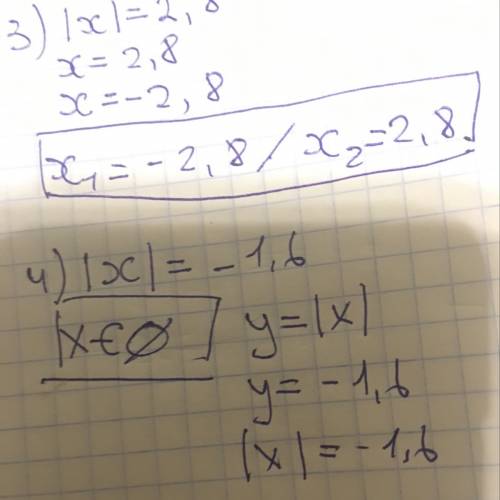 3) |x|=2,8
x=2,8
x=-2,8
x₁=-2,8 / x₂=2,8
4) |x|=-1,6
x∈∅
y=|x|
y=-1,6
|x|=-1,6